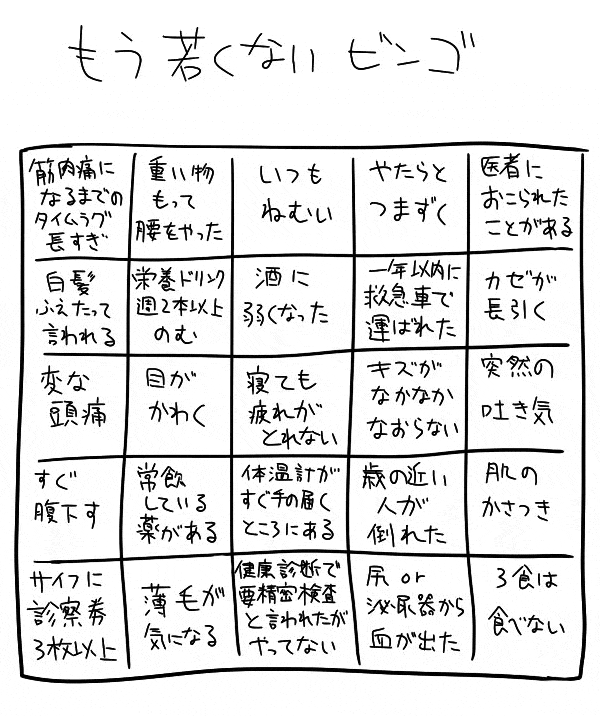 もう若くないビンゴ
筋肉痛に
なるまでの
タイムラグ
長すぎ
重い物
もって
腰をやった
いつも
ねむい
やたらと
つまずく
医者に
おこられた
ことがある
白髪
ふえたって
言われる
栄養ドリンク
週2本以上
のむ
酒に
弱くなった
一年以内に
救急車で
運ばれた
カゼが
長引く
変な
頭痛
目が
かわく
寝ても
疲れが
とれない
キズが
なかなか
なおらない
突然の
吐き気
すぐ
腹下す
常飲
している
薬がある
体温計が
すぐ手の届く
ところにある
歳の近い
人が
倒れた
肌の
かさつき
サイフに
診察券
3枚以上
薄毛が
気になる
健康診断で
要精密検査
と言われたが
やってない
尻 or
泌尿器から
血が出た
3食は
食べない